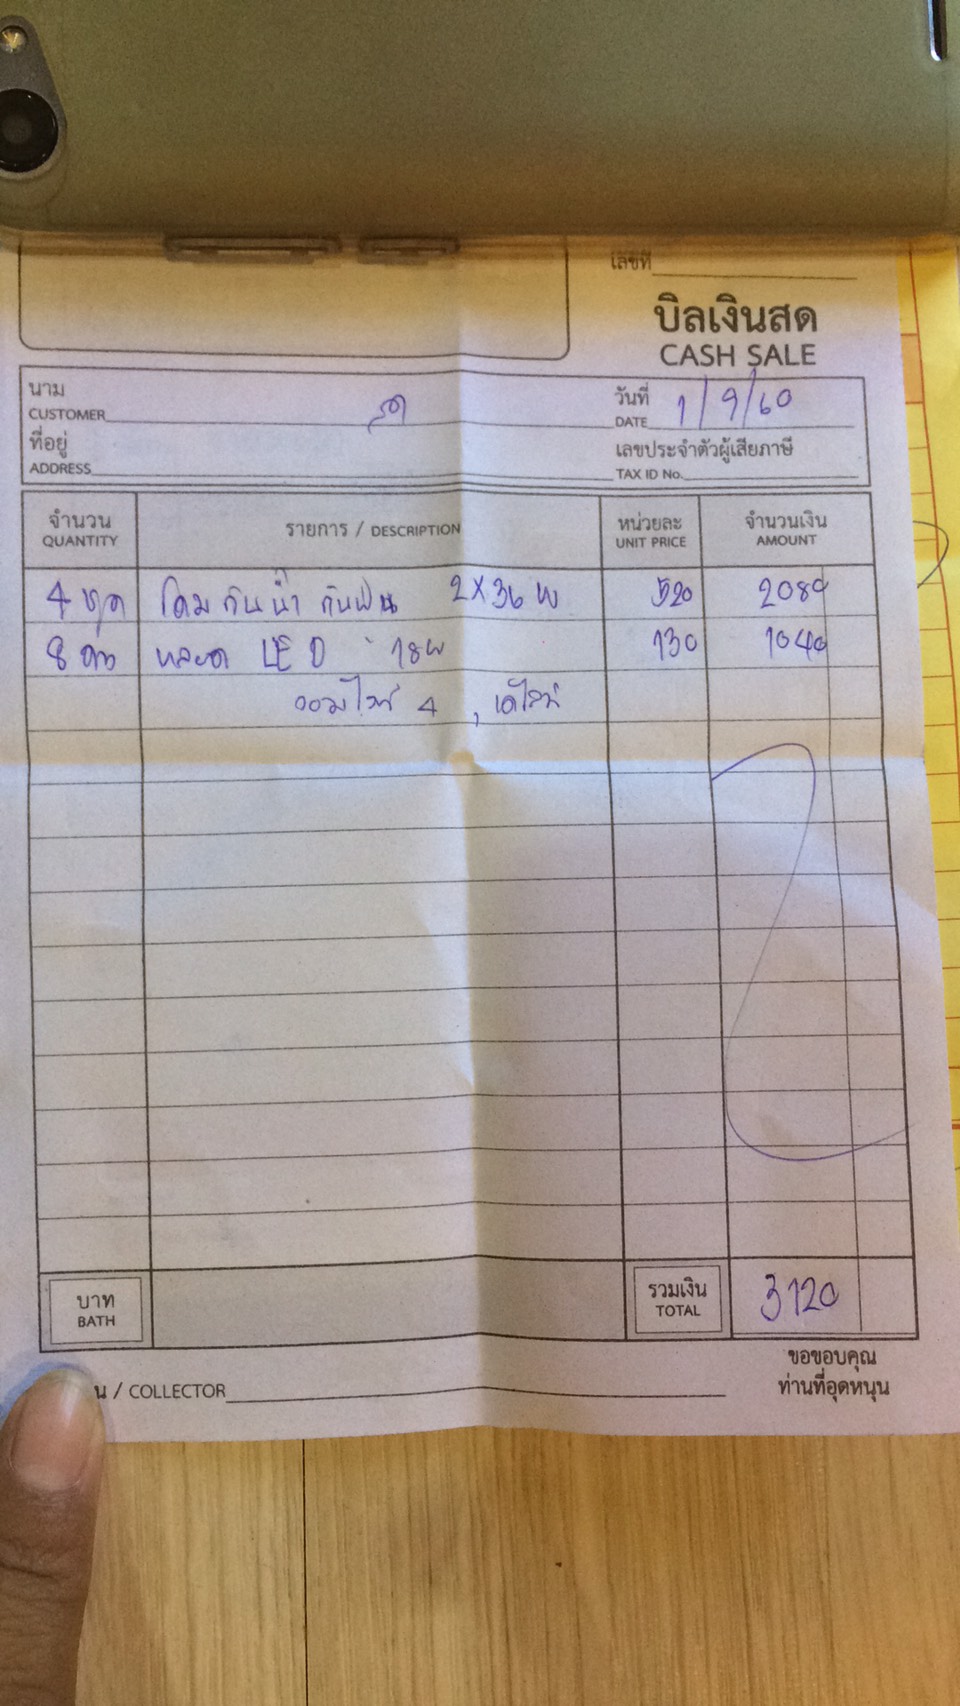 เลขที่
บิลเงินสด
CASH SALE
นาม
CUSTOMER
วันที่
DATE 1/9/60
ที่อยู่
ADDRESS
เลขประจำตัวผู้เสียภาษี
TAX ID No.
จำนวน รายการ / DESCRIPTION หน่วยละ จำนวนเงิน
QUANTITY UNIT PRICE AMOUNT
4 ชุด โคมกันน้ำ กันฝน 2X36 W 520 2080
8 ดวง หลอด LED 18W 130 1040
4 , เดไลท์
บาท
BATH
รวมเงิน
TOTAL
3120
น / COLLECTOR
ขอขอบคุณ
ท่านที่อุดหนุน